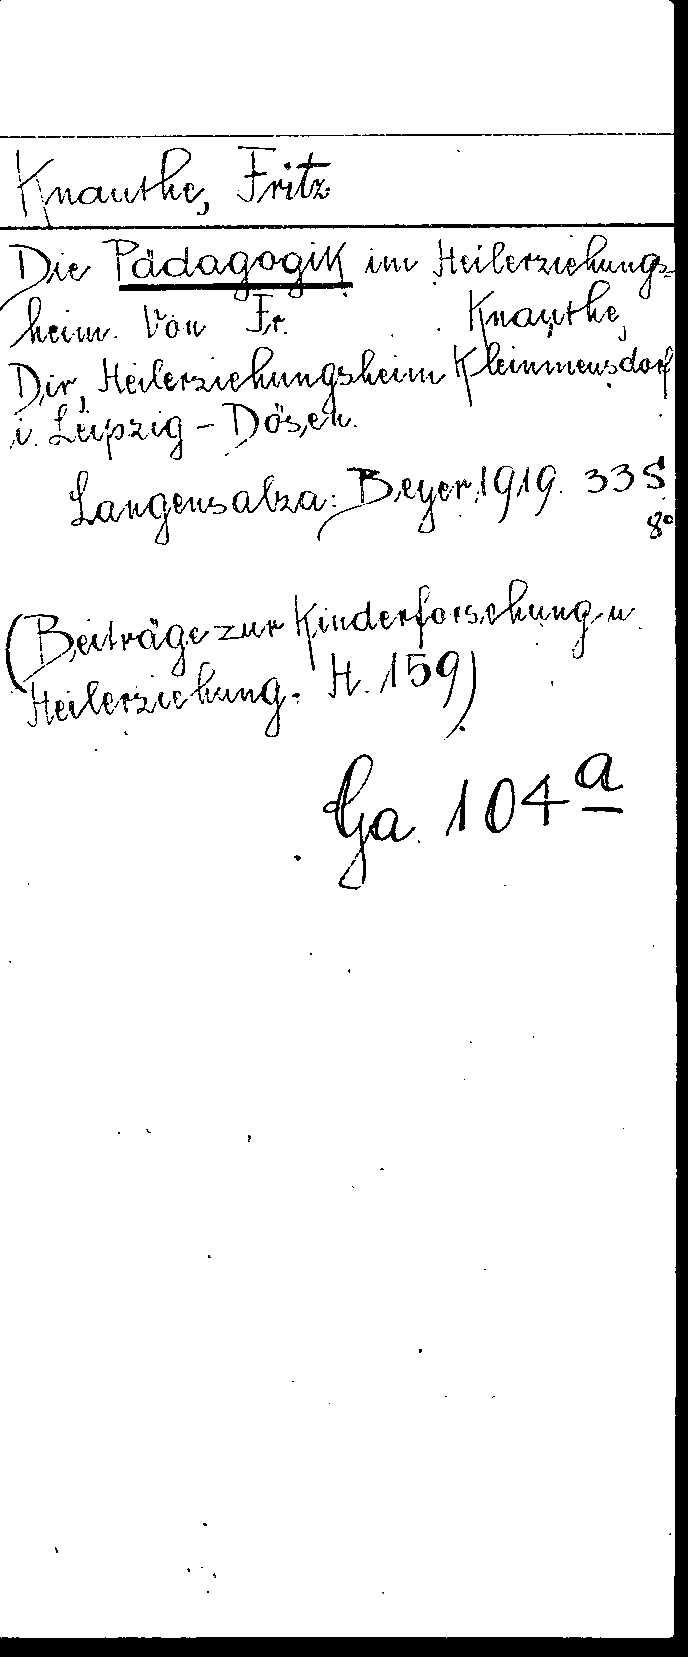 Knauthe, Fritz
Die Pädagogik im Heilerziehungs-
heim. Von Fr. Knauthe,
Dir, Heilerziehungsheim Kleinmeusdorf
i. Leipzig - Dösen.
Langensalza: Beyer, 1919. 33 S.
8°
(Beiträge zur Kinderforschung u.
Heilerziehung. H. 159)
Ga. 104 a